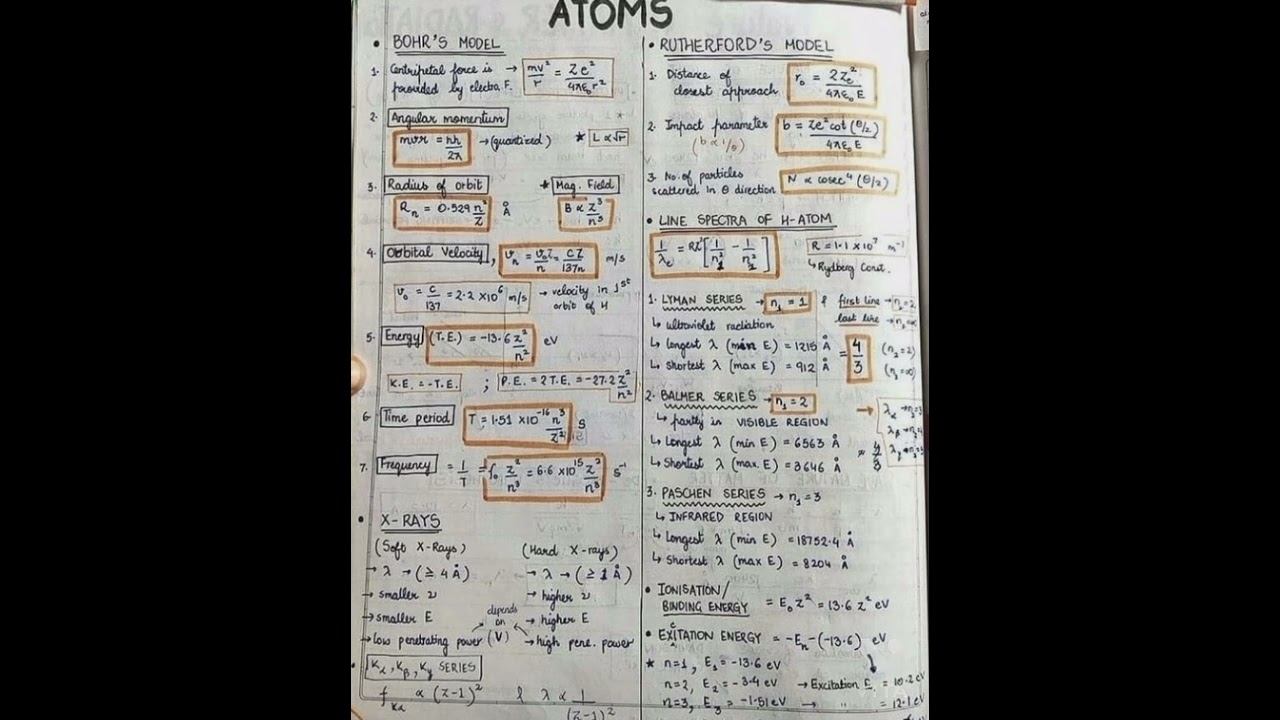 ATOMS
• BOHR'S MODEL
1. Centripetal force is → mv²/r = Ze²/4πε₀r²
provided by electro. F.
2. Angular momentum
mvr = nh/2π → (quantized) * L ∝ √r
3. Radius of orbit * Mag. Field
Rn = 0.529 n²/Z Å B ∝ Z³/n³
4. Orbital Velocity, vn = v₀Z/n = CZ/137n m/s
v₀ = C/137 = 2.2 × 10⁶ m/s → velocity in 1st
orbit of H
5. Energy (T.E.) = -13.6 Z²/n² eV
K.E. = -T.E. ; P.E. = 2 T.E. = -27.2 Z²/n²
6. Time period T = 1.51 × 10⁻¹⁶ n³/Z² s
7. Frequency = 1/T = f₀ Z²/n³ = 6.6 × 10¹⁵ Z²/n³ s⁻¹
• X-RAYS
(Soft X-Rays) (Hard X-rays)
→ λ → (≥ 4 Å) → λ → (≥ 1 Å)
→ smaller ν → higher ν
depends
on
→ smaller E → higher E
→ low penetrating power (V) → high pene. power
• Kα, Kβ, Kγ SERIES
fKα ∝ (Z-1)² & λ ∝ 1/(Z-1)²
• RUTHERFORD'S MODEL
1. Distance of
closest approach r₀ = 2Ze²/4πε₀E
2. Impact parameter b = Ze² cot(θ/2)/4πε₀E
(b ∝ 1/θ)
3. No. of particles
scattered in θ direction N ∝ cosec⁴(θ/2)
• LINE SPECTRA OF H-ATOM
1/λ = RZ² [1/n₁² - 1/n₂²] R = 1.1 × 10⁷ m⁻¹
↳ Rydberg Const.
1. LYMAN SERIES → n₁ = 1 & first line → n₂ = 2
last line → n₂ = ∞
↳ ultraviolet radiation
↳ longest λ (min E) = 1215 Å (n₂ = 2)
= 4/3
↳ shortest λ (max E) = 912 Å (n₂ = ∞)
2. BALMER SERIES → n₁ = 2
↳ partly in VISIBLE REGION
↳ Longest λ (min E) = 6563 Å
↳ Shortest λ (max. E) = 3646 Å
3. PASCHEN SERIES → n₁ = 3
↳ INFRARED REGION
↳ Longest λ (min E) = 18752.4 Å
↳ Shortest λ (max E) = 8204 Å
• IONISATION/
BINDING ENERGY = E₀Z² = 13.6 Z² eV
• EXCITATION ENERGY = -En - (-13.6) eV
* n=1, E₁ = -13.6 eV
n=2, E₂ = -3.4 eV → Excitation E. = 10.2 eV
n=3, E₃ = -1.51 eV → " = 12.1 eV